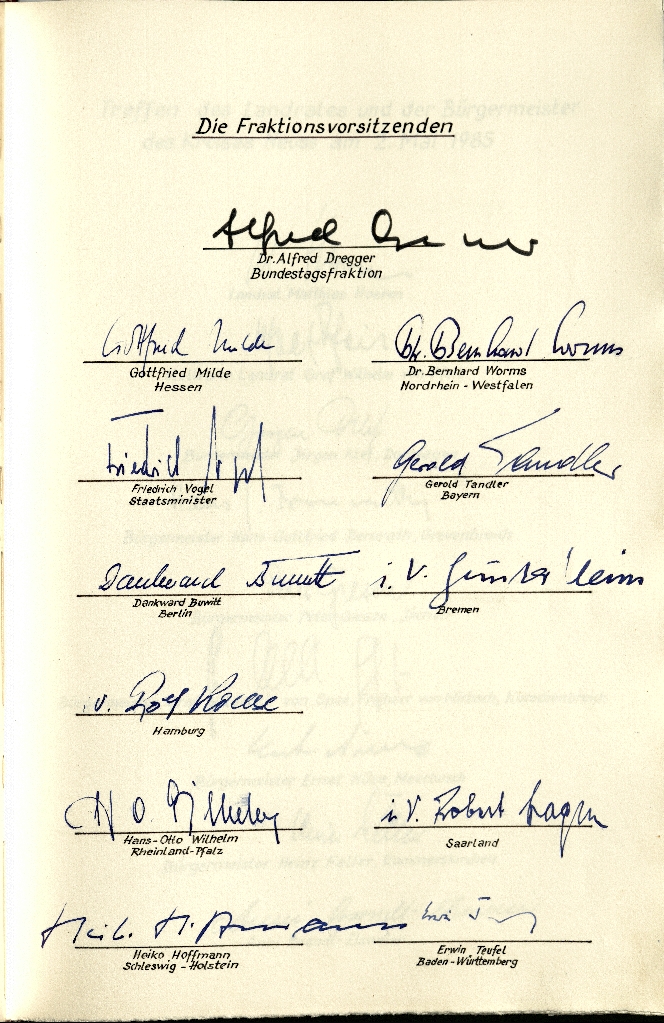 Die Fraktionsvorsitzenden
Alfred Dregger
Dr. Alfred Dregger
Bundestagsfraktion
Gottfried Milde
Gottfried Milde
Hessen
Dr. Bernhard Worms
Dr. Bernhard Worms
Nordrhein - Westfalen
Friedrich Vogel
Friedrich Vogel
Staatsminister
Gerold Tandler
Gerold Tandler
Bayern
Dankward Buwitt
Dankward Buwitt
Berlin
i. V. Günter
Bremen
i. V. Rolf
Hamburg
H O Wilhelm
Hans-Otto Wilhelm
Rheinland-Pfalz
i. V. Robert
Saarland
Heiko Hoffmann
Heiko Hoffmann
Schleswig - Holstein
Erwin Teufel
Erwin Teufel
Baden - Württemberg